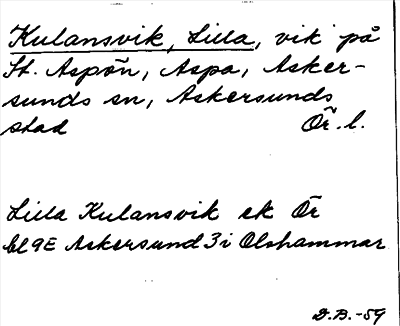 Kulansvik, Lilla, vik på
St. Aspön, Aspa, Asker-
sunds sn, Askersunds
stad Ör. l.
Lilla Kulansvik ek Ör
bl 9E Askersund 3 i Olshammar
D.B.-59